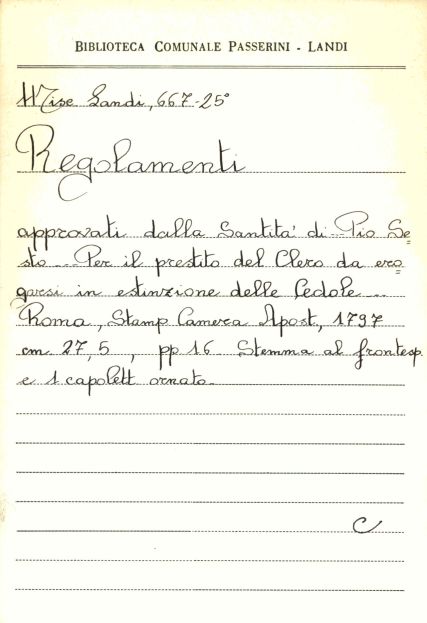 BIBLIOTECA COMUNALE PASSERINI - LANDI
Misc Landi, 667-25°
Regolamenti
approvati dalla Santita' di ... Pio Se=
sto ... Per il prestito del Clero da ero=
garsi in estinzione delle Cedole ...
Roma, Stamp Camera Apost, 1797
cm 27,5 , pp 16 Stemma al frontesp.
e 1 capolett ornato.
C